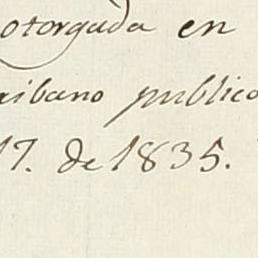 otorgada en
ribano publico
17. de 1835.